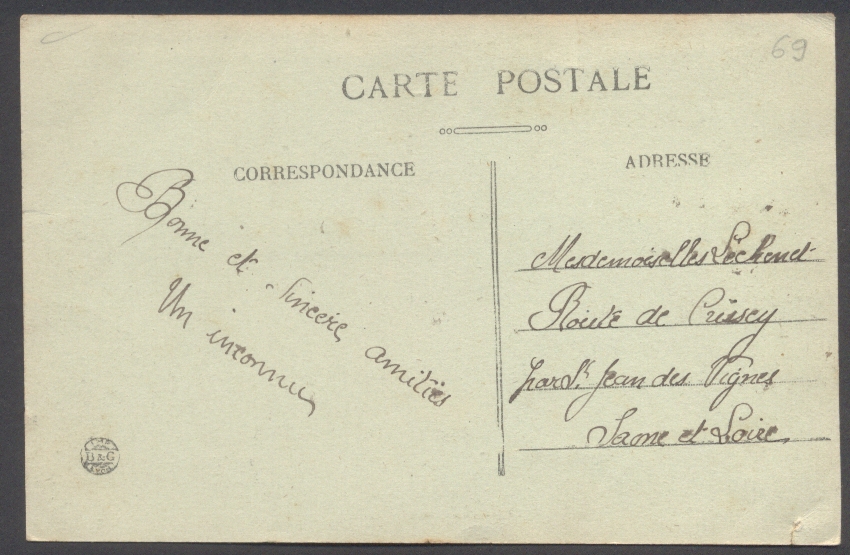 69
CARTE POSTALE
CORRESPONDANCE
Bonne et sincere amitiés
Un inconnu
B & G
ADRESSE
Mesdemoiselles Léchenet
Route de Crissey
par St Jean des Vignes
Saone et Loire